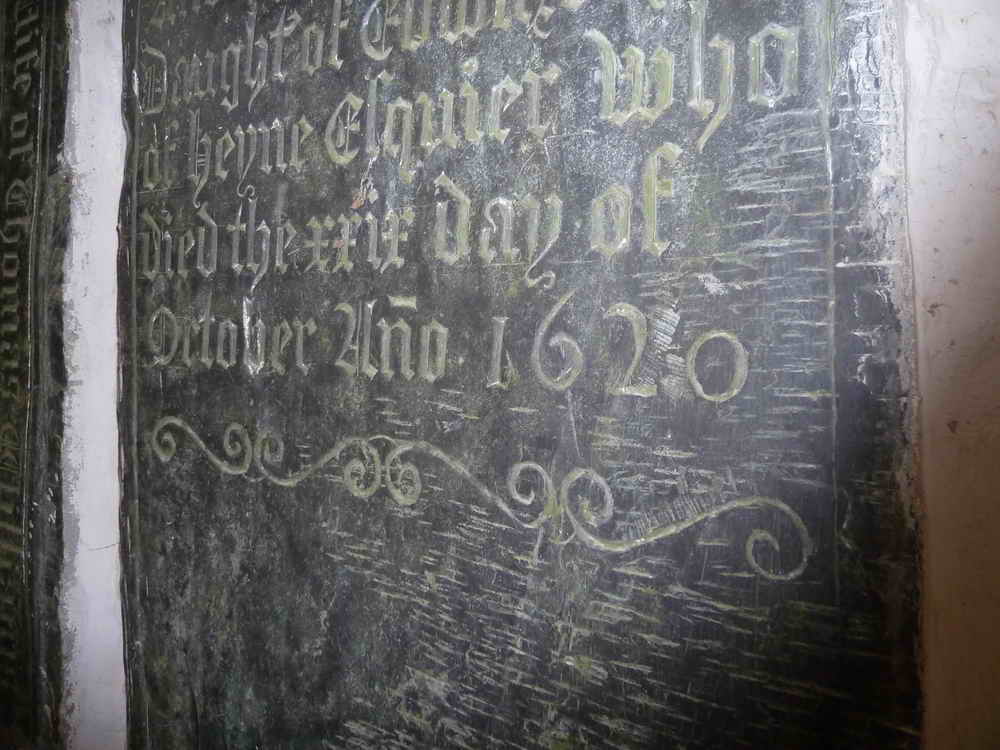 Daught of Edward
of heyne Esquier who
died the xxix day of
October Año 1620
wife of Thomas